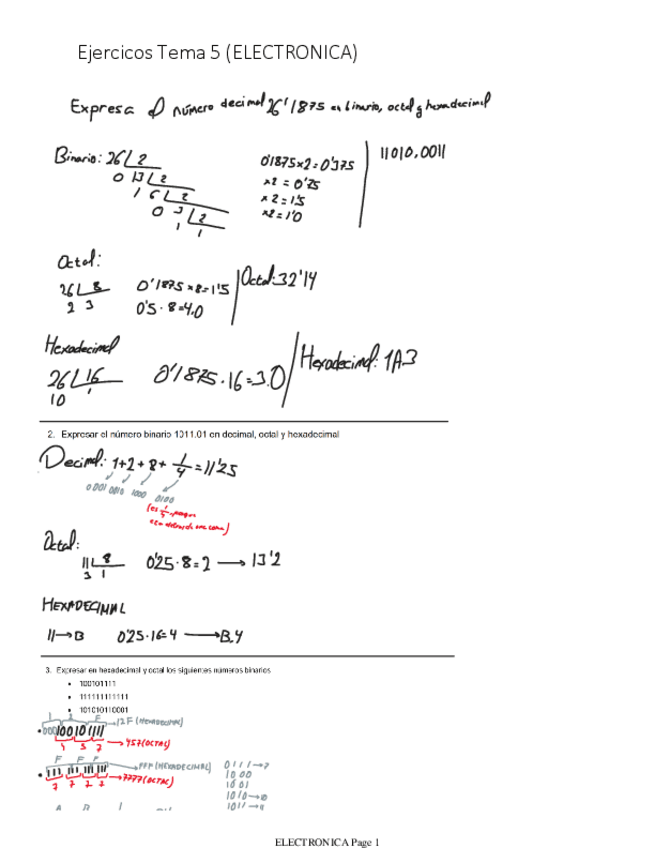 Ejercicos Tema 5 (ELECTRONICA)
Expresa el número decimal 26'1875 en binario, octal y hexadecimal
Binario: 26 2
0 13 2
1 6 2
0 3 2
1 1
0'1875x2=0'375
x2=0'75
x2=1'5
x2=1'0
11010,0011
Octal:
26 8
2 3
0'1875x8=1'5
0'5·8=4,0
Octal:32'14
Hexadecimal
26 16
10 1
0'1875·16=3.0
Hexadecimal: 1A.3
2. Expresar el número binario 1011.01 en decimal, octal y hexadecimal
Decimal: 1+2+8+1/4=11'25
0001 0010 1000 0100
Octal:
11 8
3 1
0'25·8=2 → 13'2
HEXADECIMAL
11→B 0'25·16=4 → B,4
3. Expresar en hexadecimal y octal los siguientes números binarios
• 100101111
• 111111111111
• 101010110001
1 2 F →12F (HEXADECIMAL)
• 000100101111
4 5 7 →457(OCTAL)
F F F →FFF (HEXADECIMAL)
• 111 111 111 111
7 7 7 7 →7777(OCTAL)
0111→7
1000
1001
1010→10
1011→11
ELECTRONICA Page 1